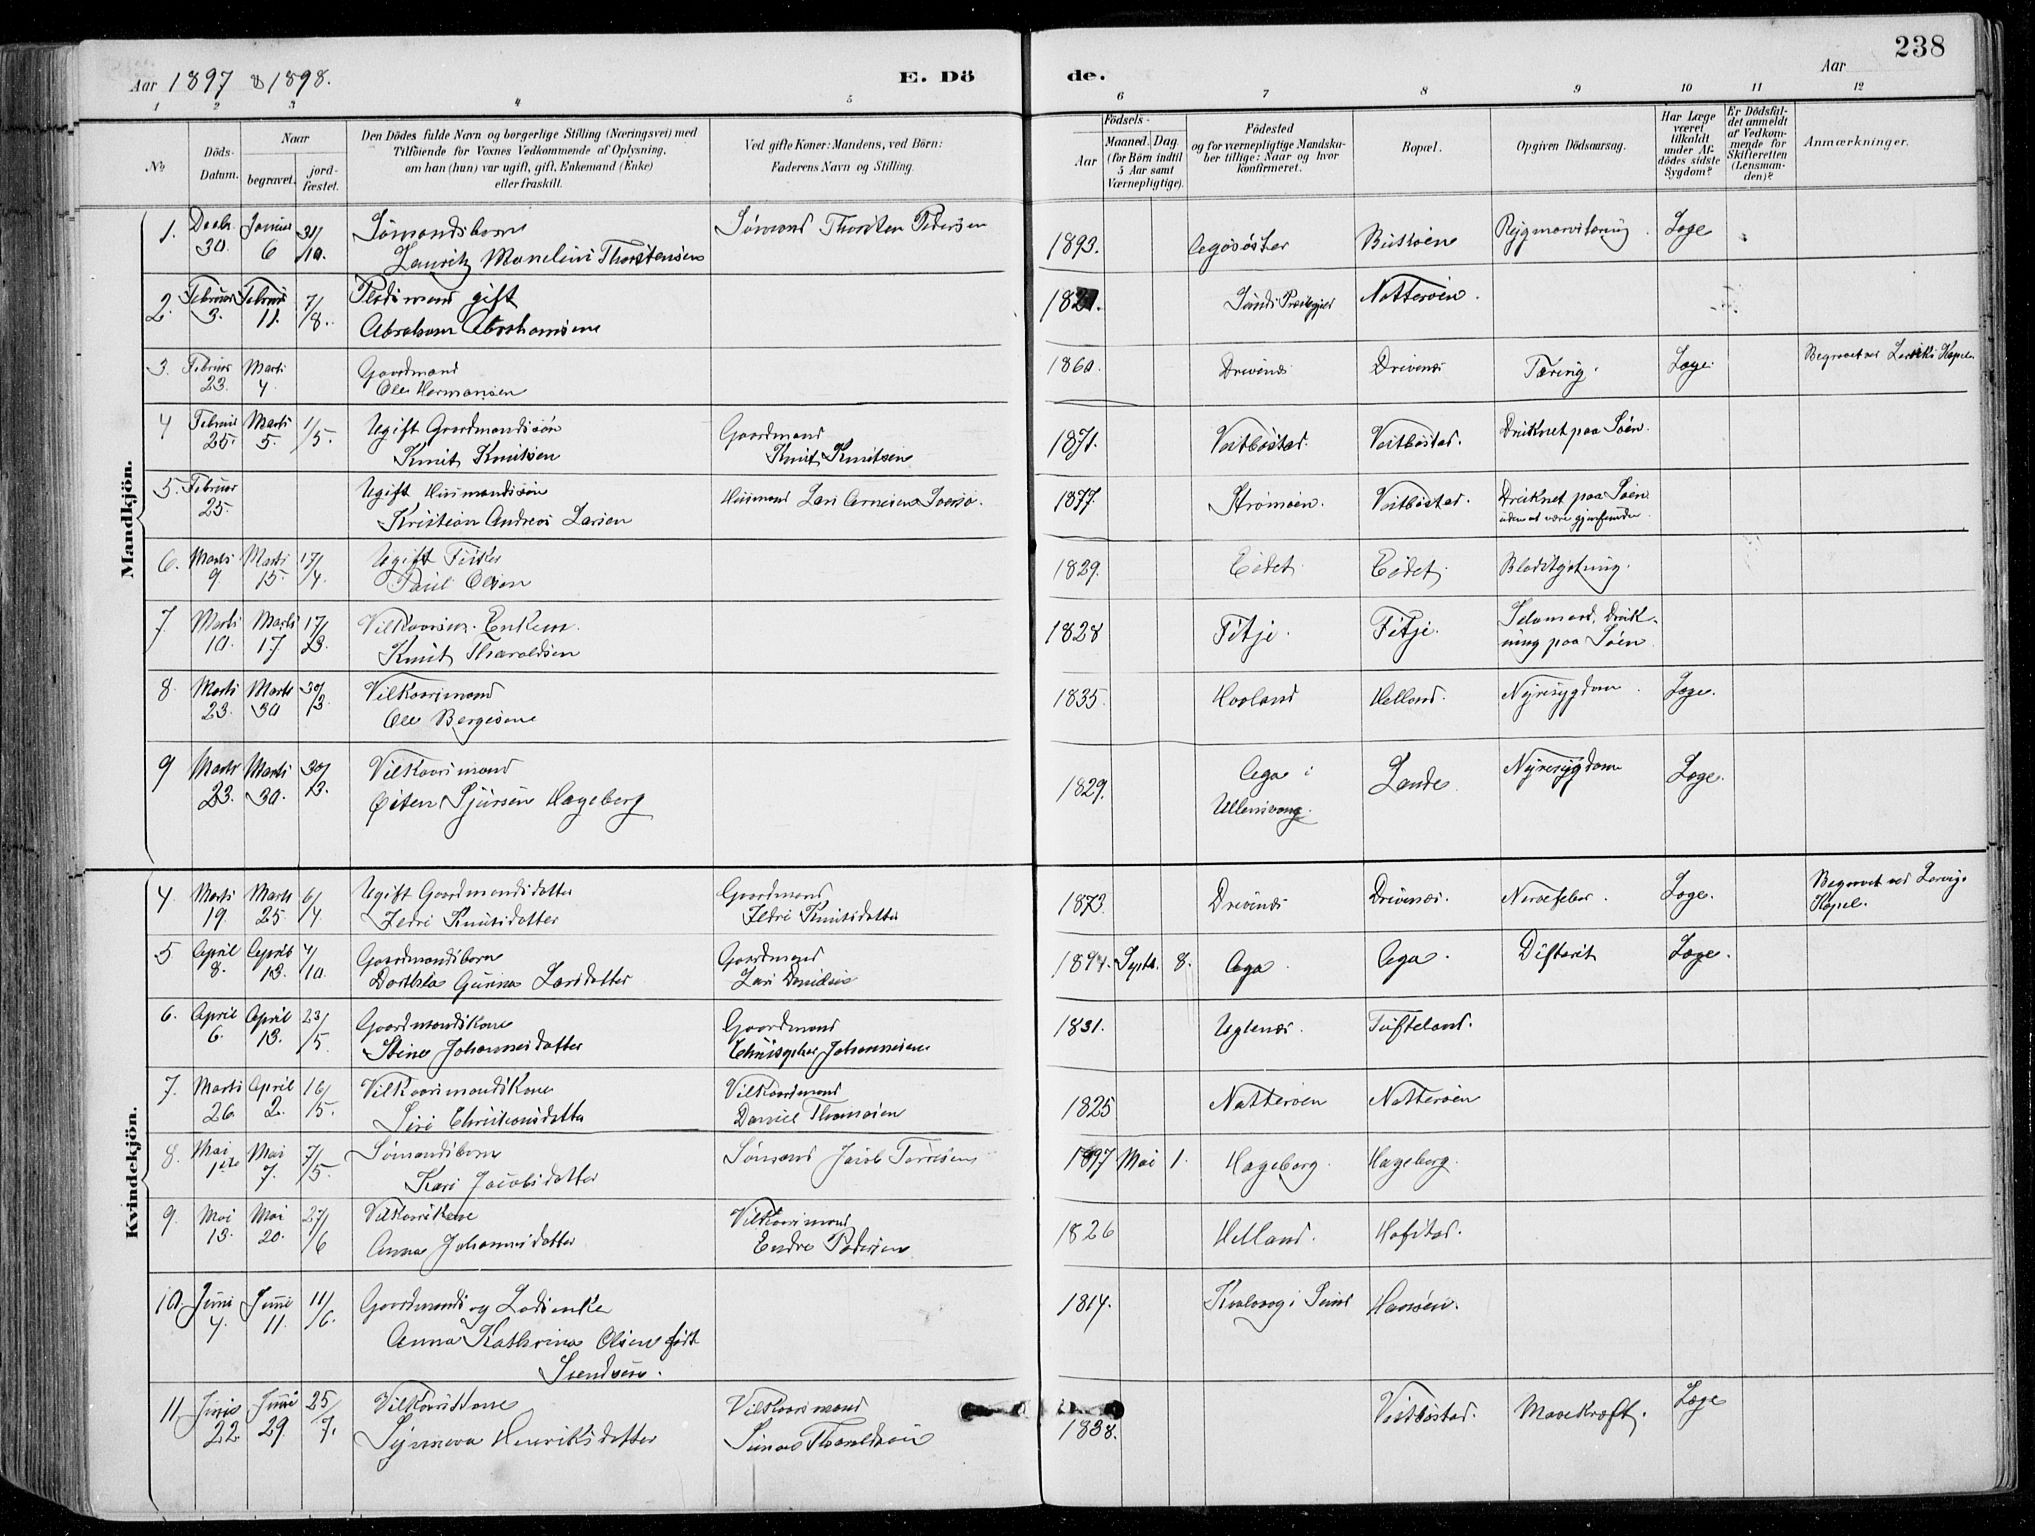 238
Aar 1897 & 1898.
E. Döde.
Aar
1 2 3 4 5 6 7 8 9 10 11 12
No
Döds-Datum.
Naar
begravet.
jord-fæstet.
Den Dödes fulde Navn og borgerlige Stilling (Næringsvei) med
Tilföiende for Voxnes Vedkommende af Oplysning,
om han (hun) var ugift, gift, Enkemand (Enke)
eller fraskilt.
Ved gifte Koner: Mandens, ved Börn:
Faderens Navn og Stilling.
Födsels-
Aar
Maaned. Dag.
(for Börn indtil
5 Aar samt
Værnepligtige).
Födested
og for værnepligtige Mandskaber tillige: Naar og hvor
konfirmeret.
Bopæl.
Opgiven Dödsaarsag.
Har Læge
været
tilkaldt
under Afdödes sidste
Sygdom?
Er Dödsfaldet anmeldt
af Vedkommende for
Skifteretten
(Lensmanden)?
Anmærkninger.
Mandkjön.
1. Decbr 30. Januar 6 31/10. Sömandsbarn Lauritz Monclini Thorstensen Sömand Thorsten Pedersen 1893. Agasöster Rygmarvstæring Læge
2. Februar 3. Februar 11. 7/8. gift Abraham Abrahamsen Natteröen.
3. Februar 23. Marts 4. Gaardmand Ole Hermansen 1860. Drivenes Drivenes Tæring. Læge. Begravet ved Lerviks Kapel.
4 Februar 25. Marts 5. 1/5. Ugift Gaardmandssön Knut Knutsen Gaardmand Knut Knutsen 1871. Vestböstad. Vestböstad. Druknet paa Söen.
5. Februar 25. Ugift Husmandssön Kristian Andreas Larsen Husmand Lars 1877. Strömöen. Vestböstad. Druknet paa Söen uden at være gjenfunden.
6. Marts 9 Marts 15. 17/4. Ugift Fisker Paul Olsen 1829. Eidet. Eidet. Blodstyrtning.
7. Marts 10. Marts 17. 17/3. Enkem. Knut Tharaldsen 1828 Fitje. Fitje. Selvmord, Drukning paa Söen
8. Marts 23. Marts 30 30/3. Vilkaarsmand Ole Bergesen 1835. Haaland Helland. Nyresygdom. Læge.
9 Marts 23. Marts 30. 30/3. Vilkaarsmand Östen Sjursen Hageberg 1829. Aga i Ullensvang. Lande. Nyresygdom Læge.
Kvindekjön.
4. Marts 19. Marts 25 6/4 Ugift Gaardmandsdatter Zedri Knutsdatter Gaardmand Knutsdatter 1873. Drivenes Drivenes. Nervefeber. Læge. Begravet ved Lervigs Kapel.
5 April 8. April 13. 7/10. Gaardmandsbarn Dorthea Gurina Larsdatter Gaardmand Lars Davidsen 1894. Septb. 8. Aga Aga. Difterit Læge.
6. April 6. April 13. 23/5. Gaardmandskone Stine Johannesdatter Gaardmand Christopher Johannesen 1831. Uglenes. Tufteland.
7. Marts 26. April 2. 16/5. Vilkaarsmandskone Siri Christiansdatter Vilkaarsmand Daniel Thomasen 1825 Natteröen Natteröen
8. Mai 1ste Mai 7. 7/5. Sömandsbarn Kari Jacobsdatter Sömand Jacob Torresen 1897 Mai 1. Hageberg. Hageberg.
9. Mai 13. Mai 20. 27/6 Vilkaarskone Anna Johannesdatter Vilkaarsmand Endre Pedersen 1826 Helland. Hofstad.
10. Juni 4. Juni 11. 11/6. Gaardmands og Lodsenke Anna Kathrina Olsen född Svendsen. 1814. i Hansöen.
11. Juni 22. Juni 29. 25/7. Vilkaarskone Synneva Henriksdatter Vilkaarsmand Simon Tharaldsen 1838. Vestböstad. Mavekræft. Læge